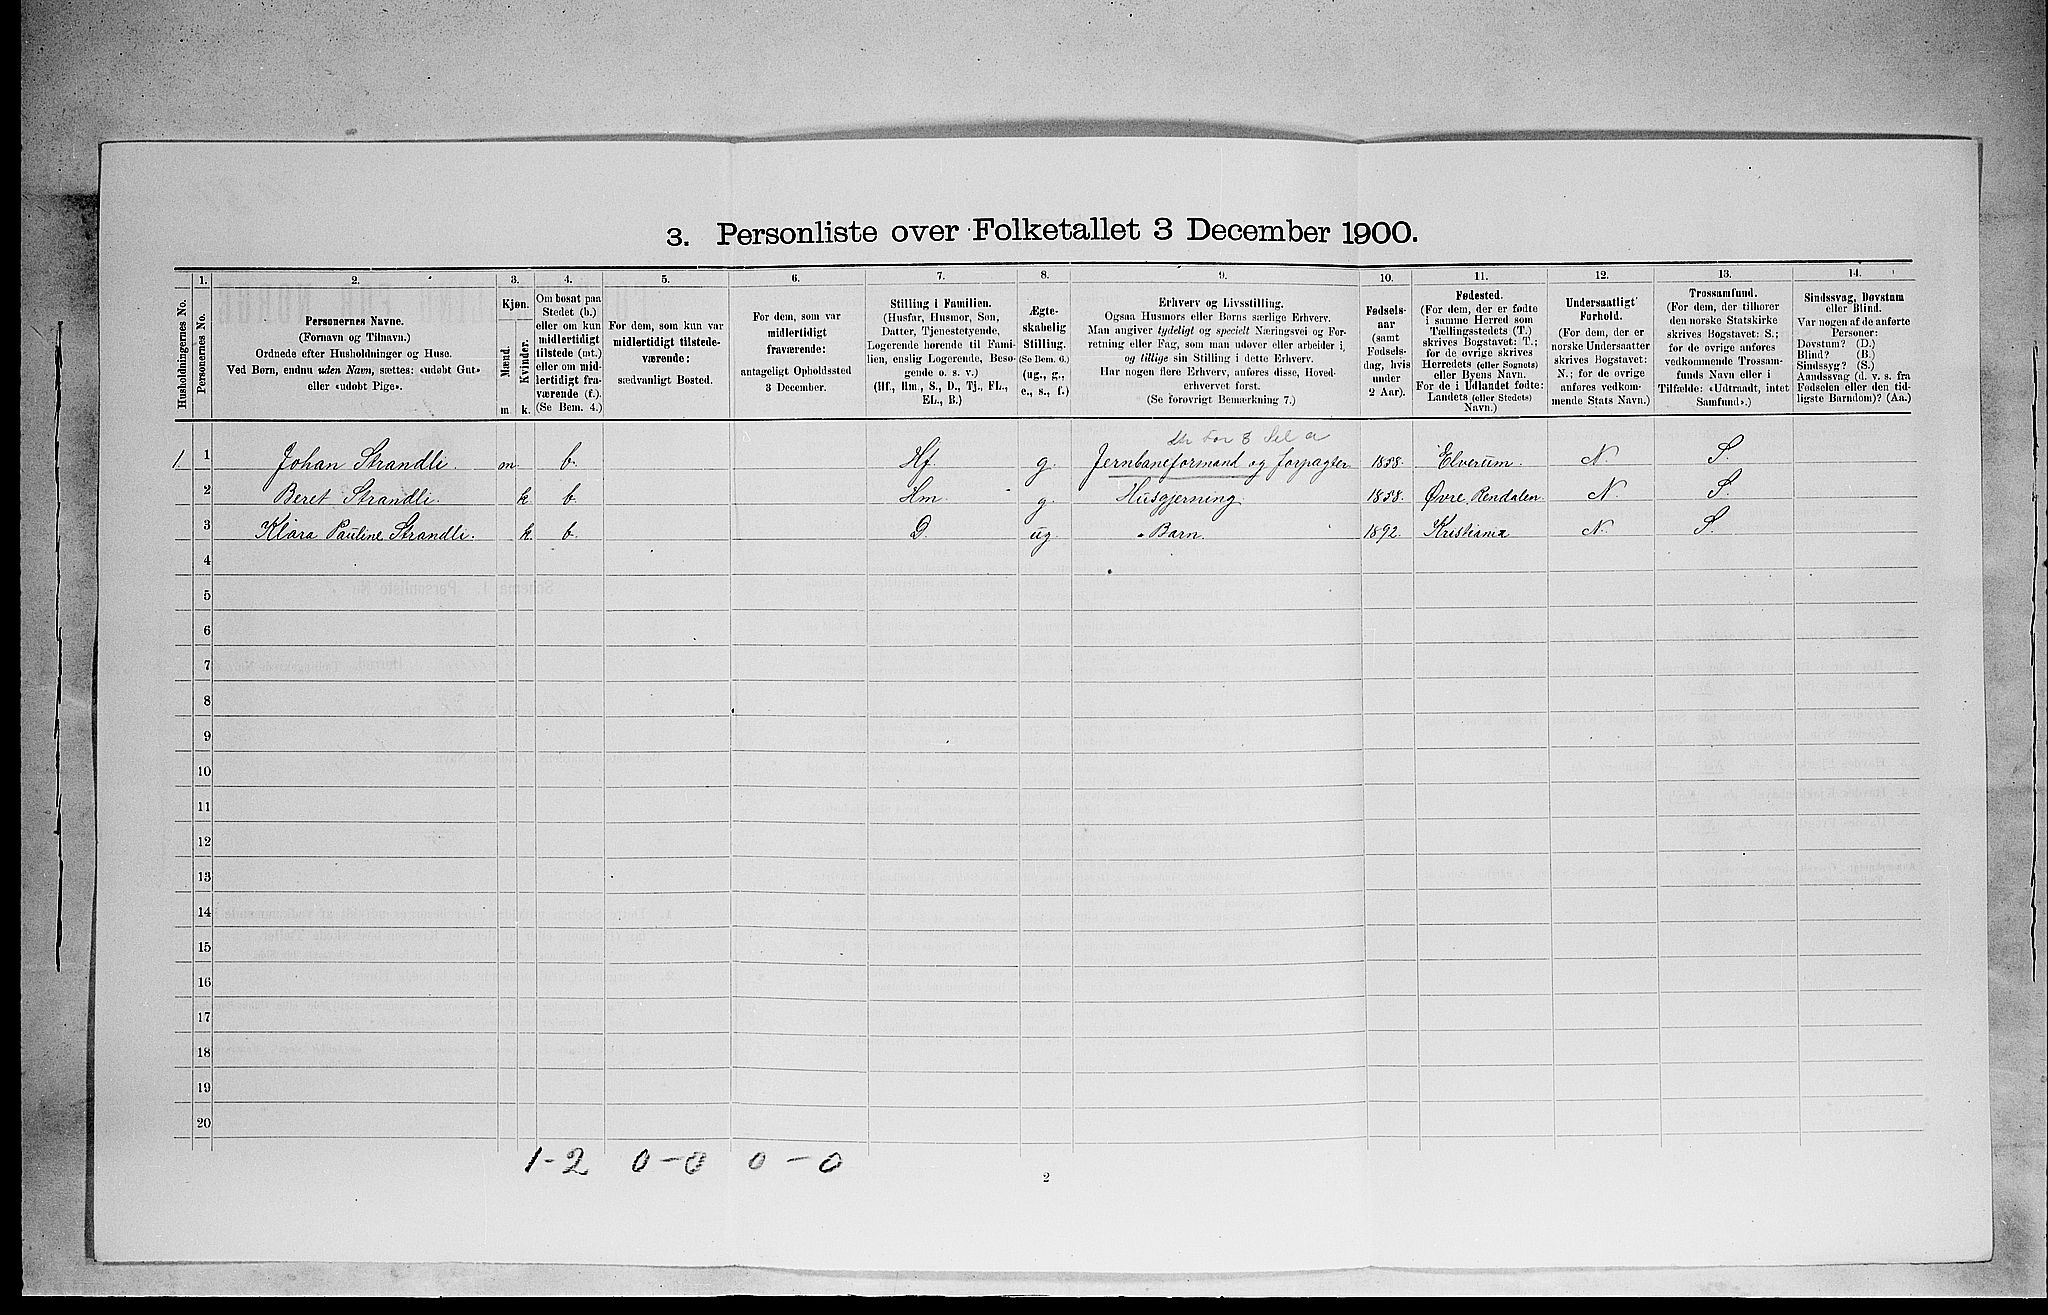 3. Personliste over Folketallet 3 December 1900.
Husholdningernes No.
1.
Personernes No.
2.
Personernes Navne.
(Fornavn og Tilnavn.)
Ordnede efter Husholdninger og Huse.
Ved Børn, endnu uden Navn, sættes: «udøbt Gut»
eller «udøbt Pige».
3.
Kjøn.
Mænd.
Kvinder.
m
k.
4.
Om bosat paa
Stedet (b.)
eller om kun
midlertidigt
tilstede (mt.)
eller om mid-
lertidigt fra-
værende (f.).
(Se Bem. 4.)
5.
For dem, som kun var
midlertidigt tilstede-
værende:
sædvanligt Bosted.
6.
For dem, som var
midlertidigt
fraværende:
antageligt Opholdssted
3 December.
7.
Stilling i Familien.
(Husfar, Husmor, Søn,
Datter, Tjenestetyende,
Logerende hørende til Fami-
lien, enslig Logerende, Besø-
gende o. s. v.)
(Hf., Hm., S., D., Tj., FL.,
EL., B.)
8.
Ægte-
skabelig
Stilling.
(Se Bem. 6.)
(ug., g.,
e., s., f.)
9.
Erhverv og Livsstilling.
Ogsaa Husmors eller Børns særlige Erhverv.
Man angiver tydeligt og specielt Næringsvei og For-
retning eller Fag, som man udøver eller arbeider i,
og tillige sin Stilling i dette Erhverv.
Har nogen flere Erhverv, anføres disse, Hoved-
erhvervet først.
(Se forøvrigt Bemærkning 7.)
10.
Fødsels-
aar
(samt
Fødsels-
dag, hvis
under
2 Aar).
11.
Fødested.
(For dem, der er fødte
i samme Herred som
Tællingsstedets (T.)
skrives Bogstavet: T.;
for de øvrige skrives
Herredets (eller Sognets)
eller Byens Navn.
For de i Udlandet fødte:
Landets (eller Stedets)
Navn.)
12.
Undersaatligt
Forhold.
(For dem, der er
norske Undersaatter
skrives Bogstavet:
N.; for de øvrige
anføres vedkom-
mende Stats Navn.)
13.
Trossamfund.
(For dem, der tilhører
den norske Statskirke
skrives Bogstavet: S.;
for de øvrige anføres
vedkommende Trossam-
funds Navn eller i
Tilfælde: «Udtraadt, intet
Samfund».)
14.
Sindssvag, Døvstum
eller Blind.
Var nogen af de anførte
Personer:
Døvstum? (D.)
Blind? (B.)
Sindssyg? (S.)
Aandssvag (d. v. s. fra
Fødselen eller den tid-
ligste Barndom)? (Aa.)
1. 1 Johan Strandli. m. b. Hf. g. Jernbaneformand og forpagter 1858. Elverum. N. S.
2 Beret Strandli. k b. Hm. g. Husgjerning 1858. Øvre Rendalen. N. S.
3 Klara Pauline Strandli. k. b. D. ug. Barn. 1892. Kristiania N. S.
4
5
6
7
8
9
10
11
12
13
14
15
16
17
18
19
20
1-2 0-0 0-0
2